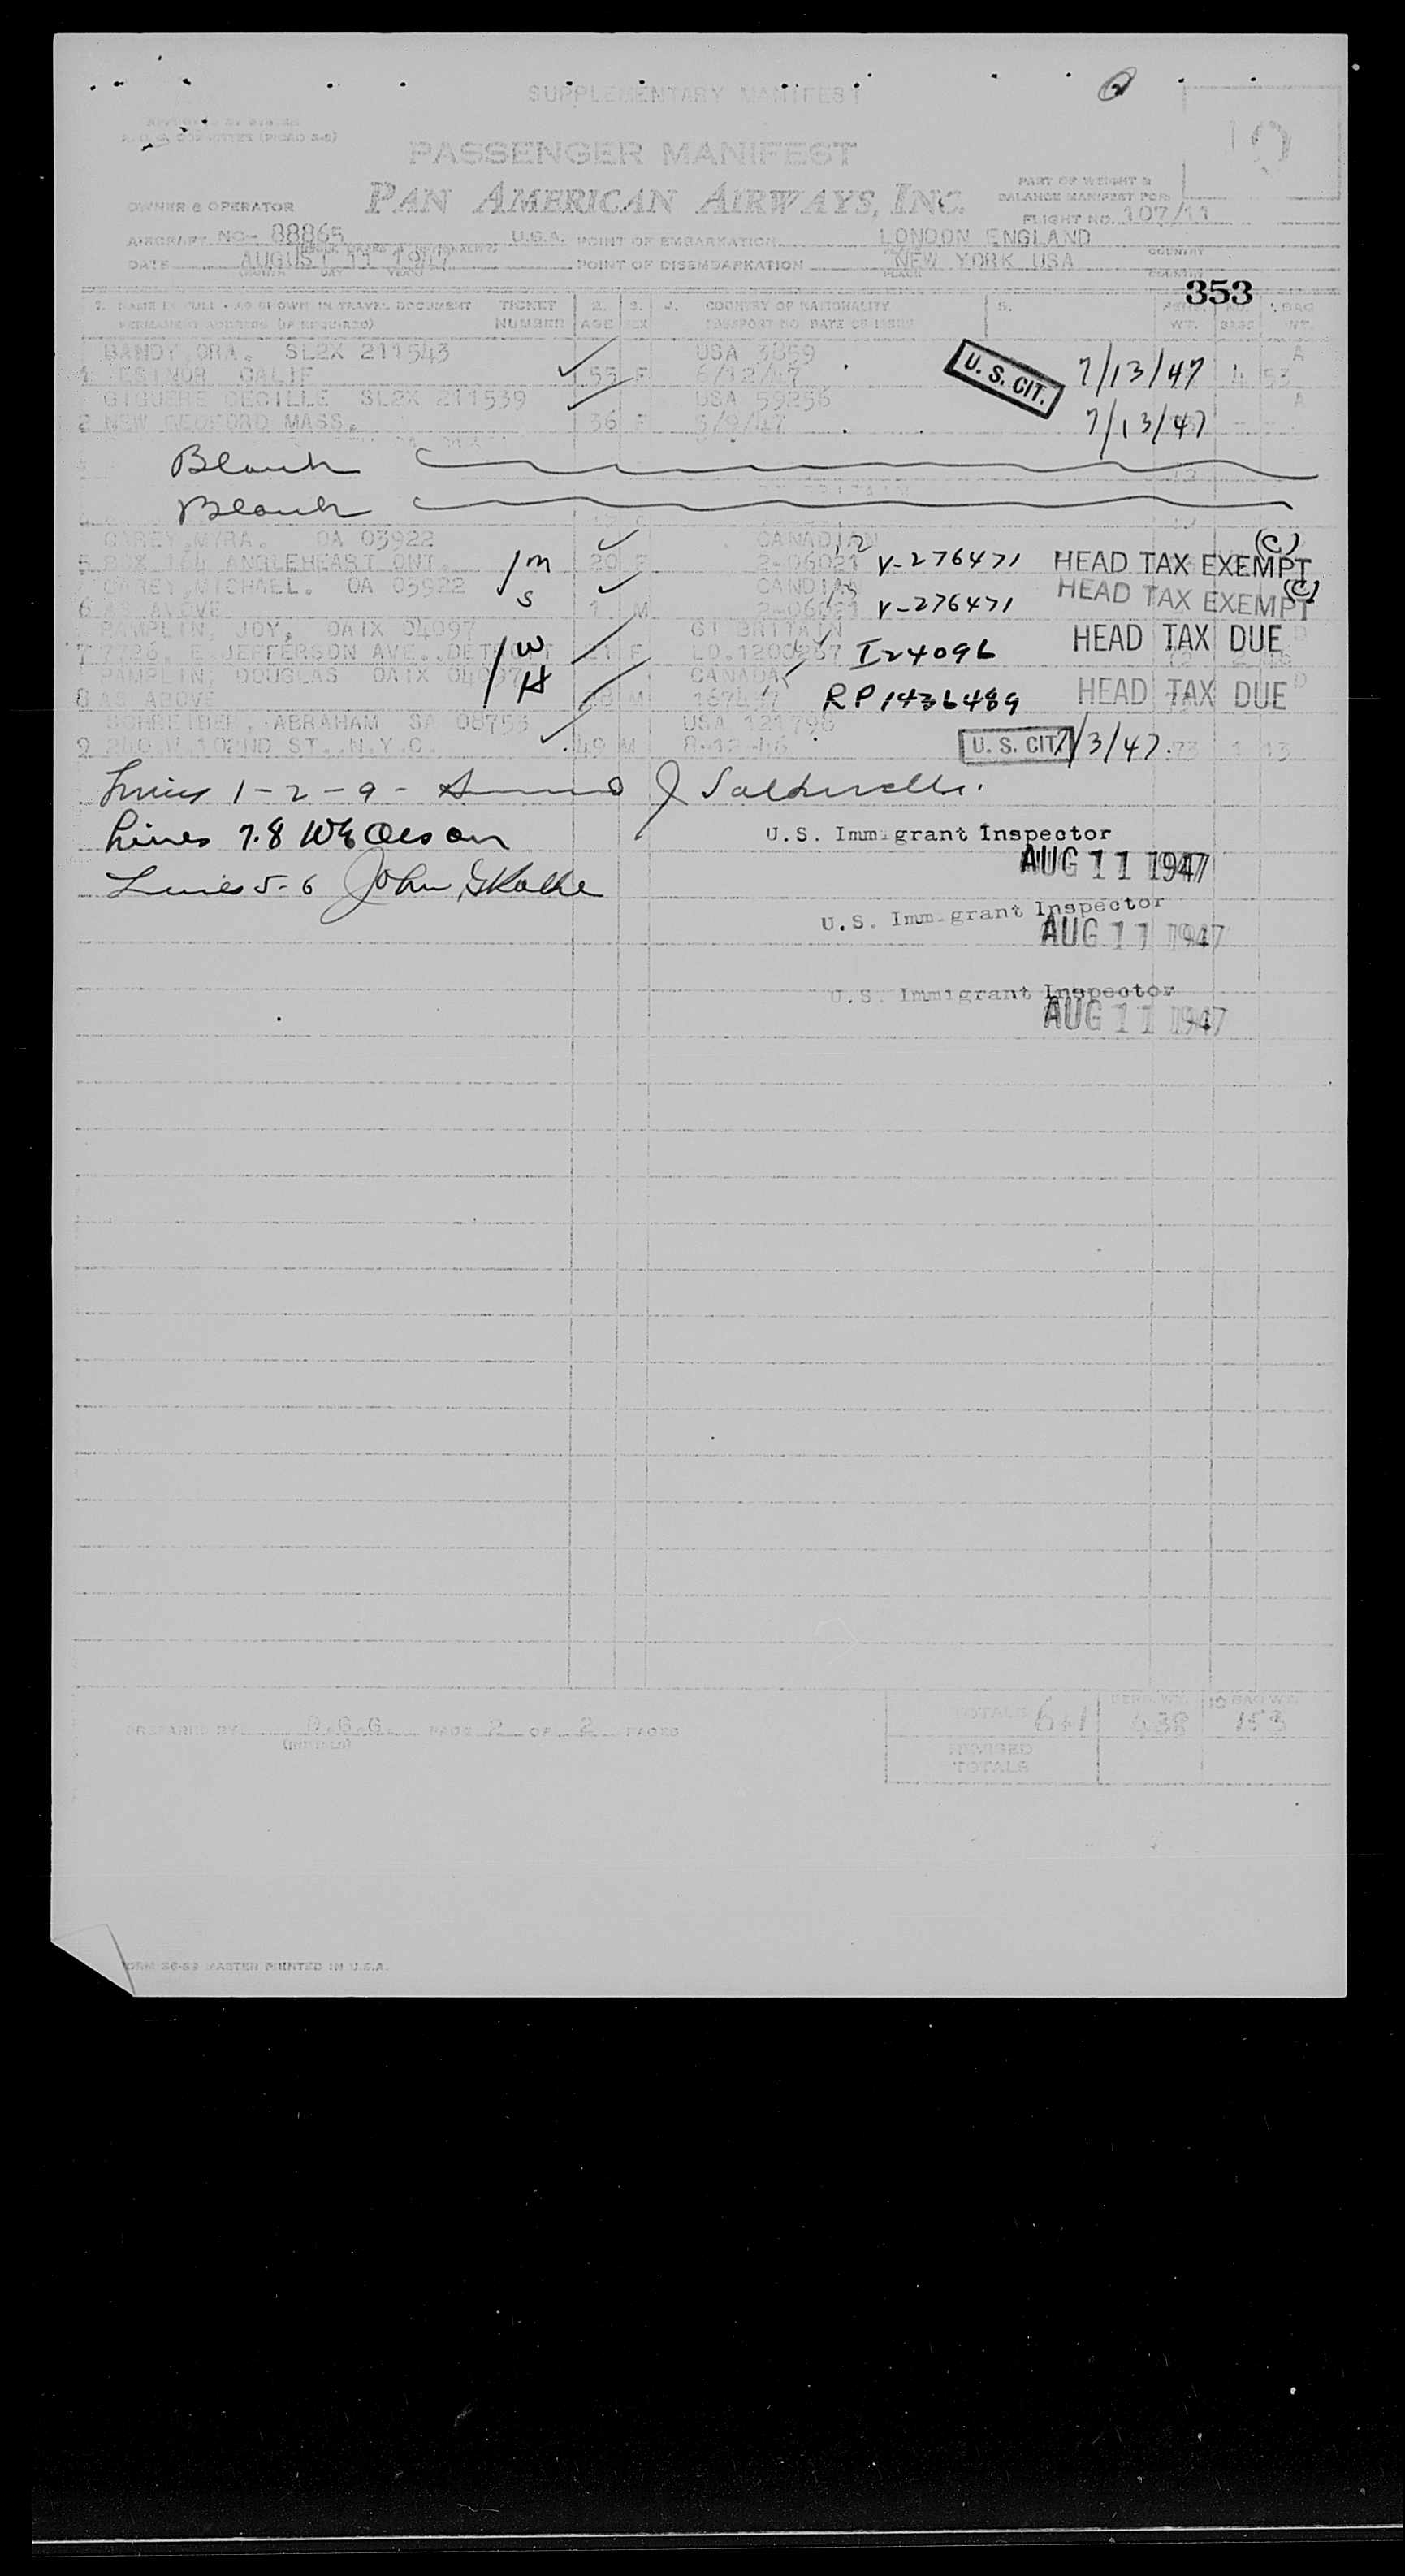 SUPPLEMENTARY MANIFEST
PASSENGER MANIFEST
PAN AMERICAN AIRWAYS, INC.
PART OF WEIGHT &
BALANCE MANIFEST FOR
OWNER & OPERATOR
FLIGHT NO. 107/11
AIRCRAFT NC- 88865 U.S.A. POINT OF EMBARKATION LONDON ENGLAND
DATE AUGUST 11 1947 POINT OF DISEMBARKATION NEW YORK USA
MONTH DAY YEAR PLACE COUNTRY
353
1. NAME IN FULL - AS SHOWN IN TRAVEL DOCUMENT TICKET 2. 3. 4. COUNTRY OF NATIONALITY 5. PERS. NO. BAG
PERMANENT ADDRESS (IF REQUIRED) NUMBER AGE SEX PASSPORT NO. DATE OF ISSUE WT. BAGS WT.
BANDY, ORA. SL2X 211543 USA 3859 A
1 CALIF 55 F 6/12/47 U. S. CIT. 7/13/47 4 53
GIGUERE CECILLE SL2X 211539 USA 59256 A
2 NEW BEDFORD MASS. 36 F 5/9/47 7/13/47
Blank
Blank
CAREY, MYRA. OA 03922 CANADIAN (C)
5 BOX 164 ANGLEHEART ONT. m 20 F 2-06021 V-276471 HEAD TAX EXEMPT
CAREY, MICHAEL. OA 03922 CANDIAN (C)
6 AS ANOVE s 1 M 2-06021 V-276471 HEAD TAX EXEMPT
PAMPLIN, JOY. OAIX 04097 GT BRITAIN
7 7726, E. JEFFERSON AVE., DETROIT W 21 F I24096 HEAD TAX DUE
PAMPLIN, DOUGLAS OAIX 04097 CANADA D
8 AS ABOVE H M RP1436489 HEAD TAX DUE
SCHREIBER, ABRAHAM SA 08753 USA 121798
9 240 W. 102ND ST. N.Y.C. 49 M 8-12-46 U. S. CIT. 7/3/47 73 1 13
Lines 1-2-9- J
Lines 7.8 WE Olson U.S. Immigrant Inspector
AUG 11 1947
Lines 5-6 John
U.S. Immigrant Inspector
AUG 11 1947
U.S. Immigrant Inspector
AUG 11 1947
PREPARED BY PAGE 2 OF 2 PAGES
TOTALS 641 PERS. WT. 438 BAG WT. 153
REVISED
TOTALS
FORM MASTER PRINTED IN U.S.A.